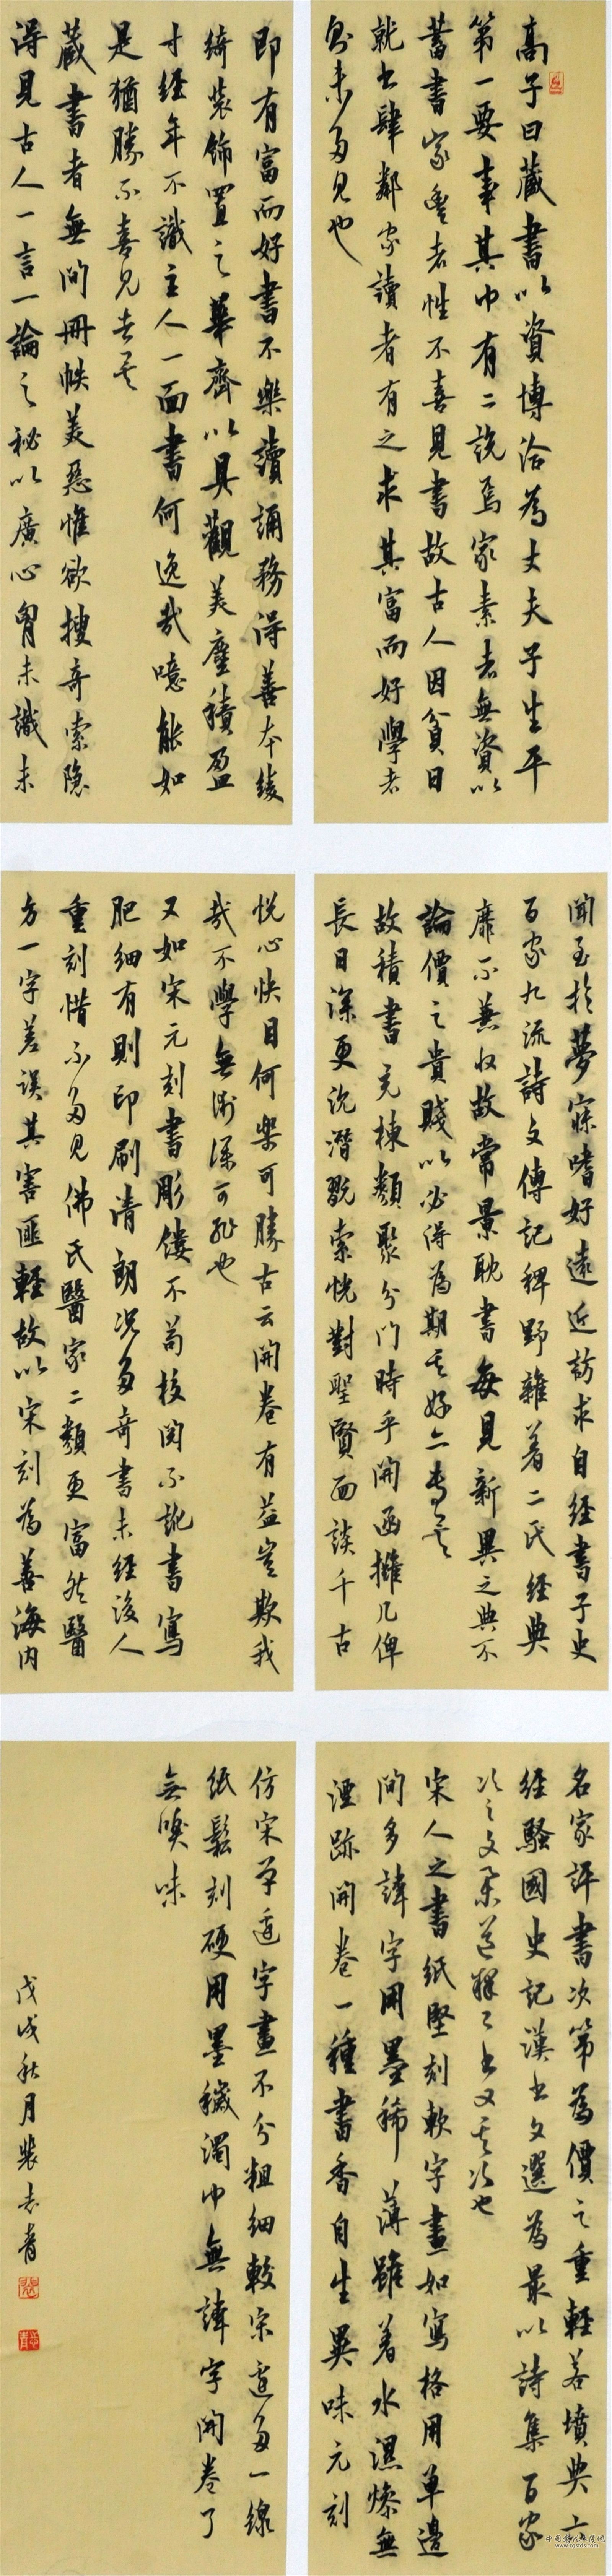 高子曰藏書以資博洽為丈夫子生平
第一要事其中有二說焉家素者無資以
蓄書家豐者性不喜見書故古人因貧日
就書肆鄰家讀者有之求其富而好學者
則未多見也
即有富而好書不樂讀誦務得善本綾
綺裝飾置之華齋以具觀美塵積盈
寸經年不識主人一面書何逸哉噫能如
是猶勝不喜見者矣
藏書者無問冊帙美惡惟欲搜奇索隱
得見古人一言一論之秘以廣心胸未識未
聞至於夢寐嗜好遠近訪求自經書子史
百家九流詩文傳記稗野雜著二氏經典
靡不兼收故常景耽書每見新異之典不
論價之貴賤以必得為期其好亦專矣
故積書充棟類聚分門時乎開函攤几俾
長日深更沉潛玩索恍對聖賢面談千古
悅心快目何樂可勝古云開卷有益豈欺我
哉不學無術深可恥也
又如宋元刻書彫鏤不苟校閱不訛書寫
肥細有則印刷清朗況多奇書未經後人
重刻惜不多見佛氏醫家二類更富然醫
方一字差誤其害匪輕故以宋刻為善海內
名家評書次第為價之重輕若墳典六
經騷國史記漢書文選為最以詩集百家
次之文集道釋二書又其次也
宋人之書紙堅刻軟字畫如寫格用單邊
間多諱字用墨稀薄雖着水濕燥無
湮跡開卷一種書香自生異味元刻
仿宋單邊字畫不分粗細較宋邊多一線
紙鬆刻硬用墨穢濁中無諱字開卷了
無嗅味
戊戌秋月裴志青
www.zgshfds.com